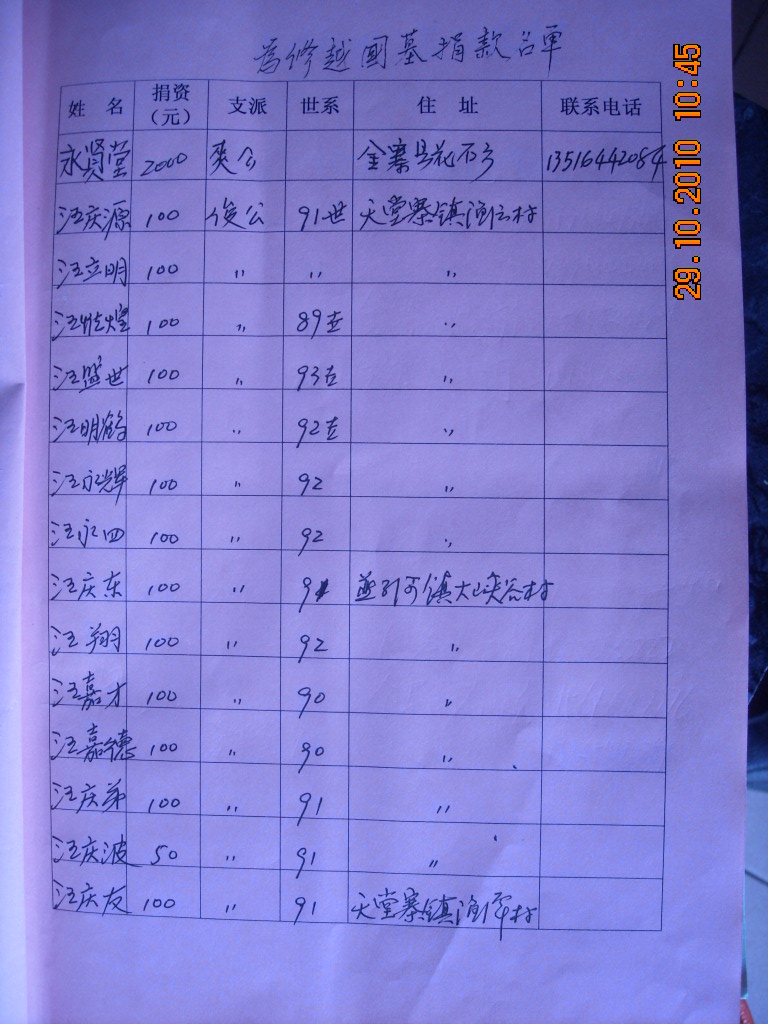 为修越国墓捐款名单
姓 名 捐资（元） 支派 世系 住 址 联系电话
永贤堂 2000 爽公 金寨县花石乡 13516442084
汪庆源 100 俊公 91世 天堂寨镇渔 村
汪立明 100 〃 〃 〃
汪 煌 100 〃 89世 〃
汪盛世 100 〃 93世 〃
汪明 100 〃 92世 〃
汪永辉 100 〃 92 〃
汪永四 100 〃 92 〃
汪庆东 100 〃 91 燕子河镇大峡谷村
汪翔 100 〃 92 〃
汪嘉才 100 〃 90 〃
汪嘉德 100 〃 90 〃
汪庆弟 100 〃 91 〃
汪庆波 50 〃 91 〃
汪庆友 100 〃 91 天堂寨镇渔潭村
29.10.2010 10:45